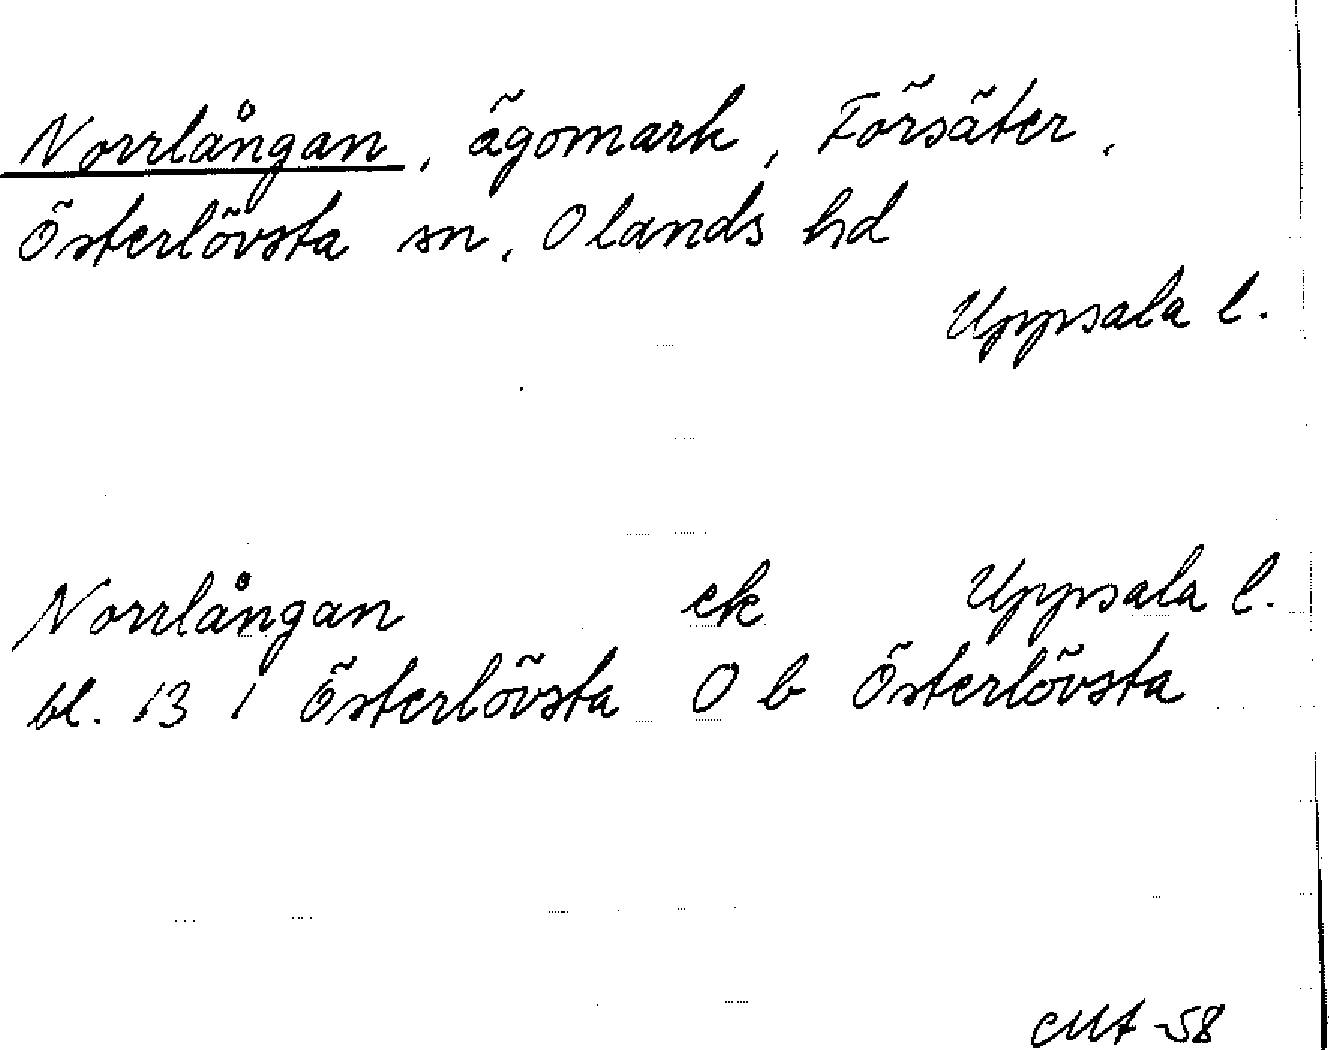 Norrlången, ägomark, Försäter,
Österlövsta sn, Olands hd
Uppsala l.
Norrlångan ek Uppsala l.
bl. 13 i Österlövsta O b Österlövsta
-58